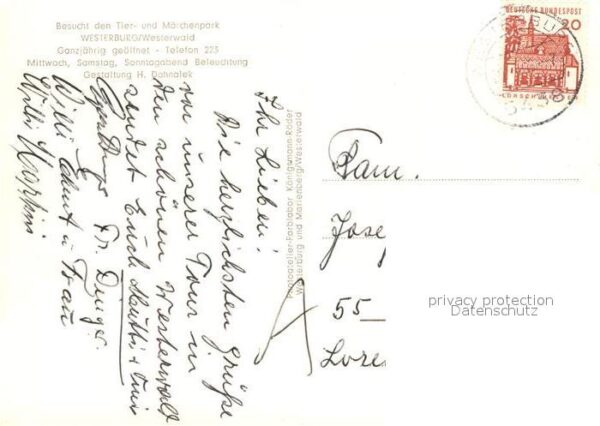 Besucht den Tier- und Märchenpark
WESTERBURG/Westerwald
Ganzjährig geöffnet - Telefon 223
Mittwoch, Samstag, Sonntagabend Beleuchtung
Gestaltung H. Dohnalek
Ihr Lieben!
Die herzlichsten Grüße
von unserer Tour in
den schönen Westerwald
sendet Euch
Fr. Dinges.
Willi u Frau
Willi
Photoatelier-Farblabor Königsmann-Röder
Westerburg und Marienberg/Westerwald
DEUTSCHE BUNDESPOST
20
LORSCH
Fam.
Jose
55
privacy protection
Datenschutz